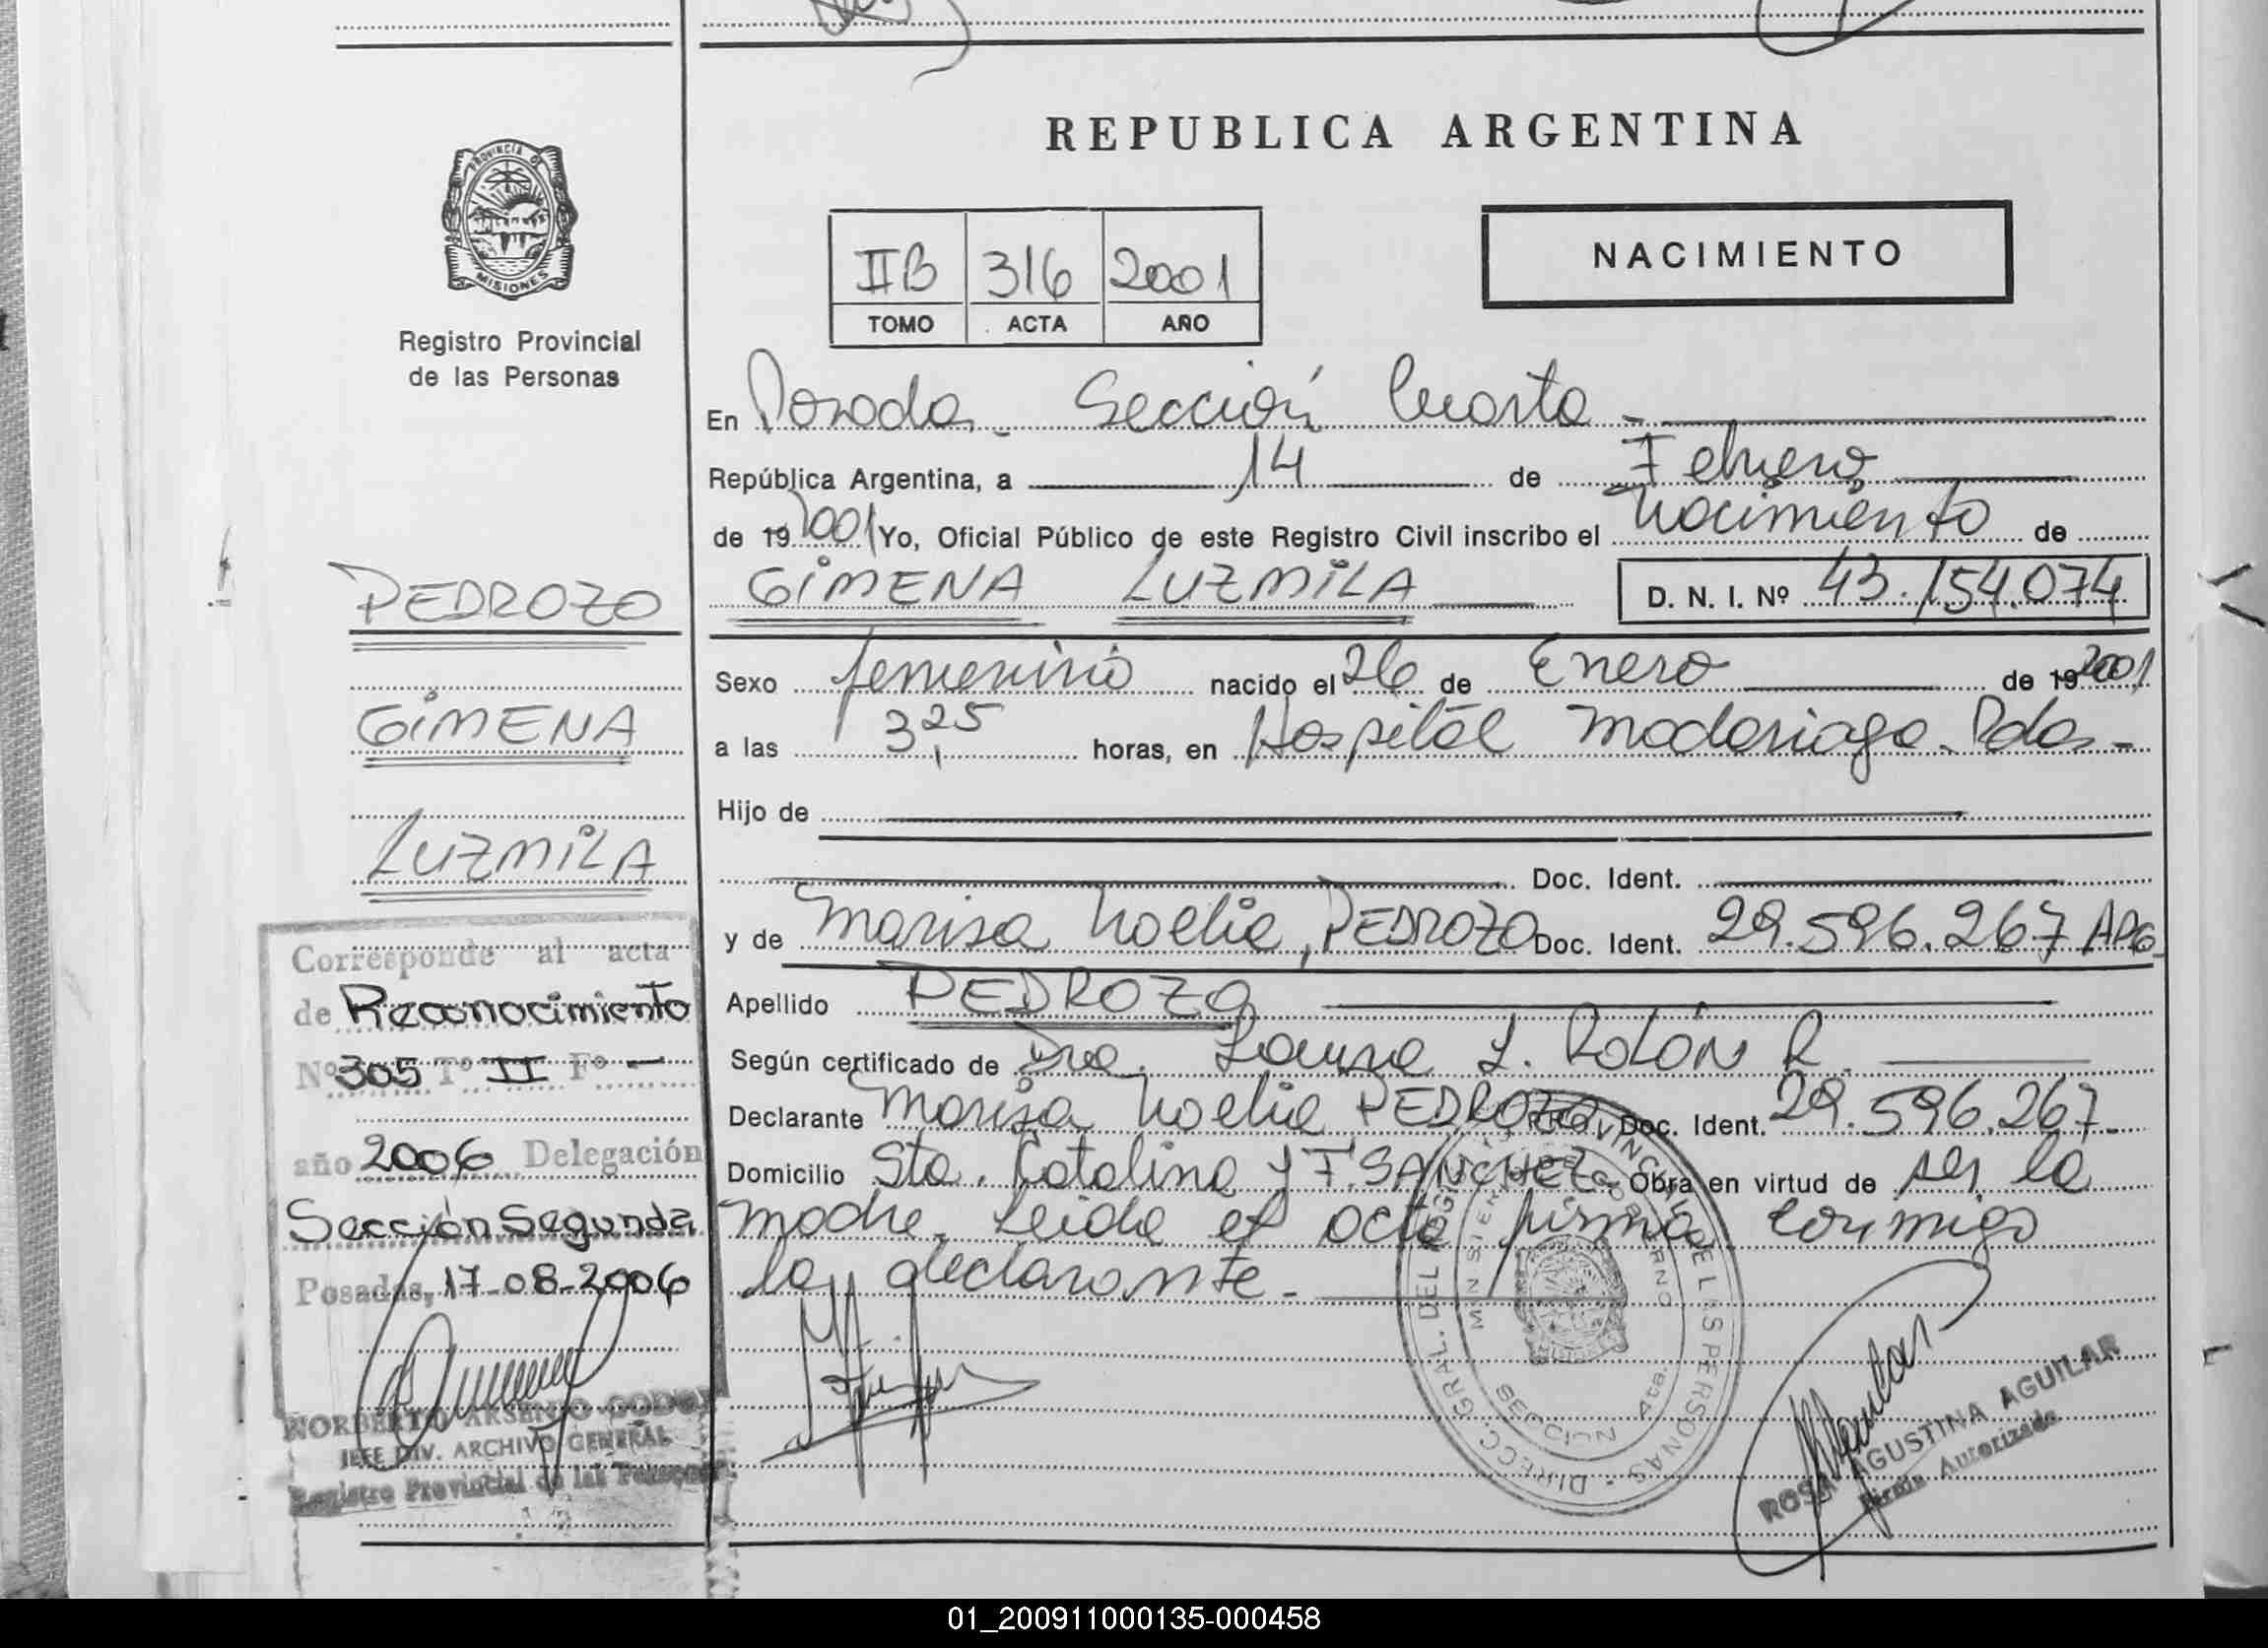 REPUBLICA ARGENTINA
PROVINCIA DE
MISIONES
Registro Provincial
de las Personas
IIB 316 2001
TOMO ACTA AÑO
NACIMIENTO
En Posadas - Sección Cuarta -
República Argentina, a 14 de Febrero
de 19 2001 Yo, Oficial Público de este Registro Civil inscribo el Nacimiento de
GIMENA LUZMILA D. N. I. Nº 43.154.074
Sexo femenino nacido el 26 de Enero de 19 2001
a las 3,25 horas, en Hospital Madariaga. Pdas -
Hijo de
Doc. Ident.
y de Marisa Noelia, PEDROZO Doc. Ident. 29.596.267
Apellido PEDROZO
Según certificado de Dra. Laura L. Rolón R.
Declarante Marisa Noelia PEDROZO Doc. Ident. 29.596.267.
Domicilio Sta. Catalina y F. SANCHEZ. Obra en virtud de ser la
madre. Leida el acta firma conmigo
la declarante. -
PEDROZO
GIMENA
LUZMILA
Corresponde al acta
de Reconocimiento
Nº 305 Tº II Fº -
año 2006 Delegación
Sección Segunda
Posadas, 17-08-2006
NORBERTO ARSENIO
JEFE DIV. ARCHIVO GENERAL
Registro Provincial de las Personas
DIRECC. GRAL. DEL REG. PROVINCIAL DE LAS PERSONAS
SECCION 4ta.
Aguilar
ROSA AGUSTINA AGUILAR
Firma Autorizada
01_200911000135-000458